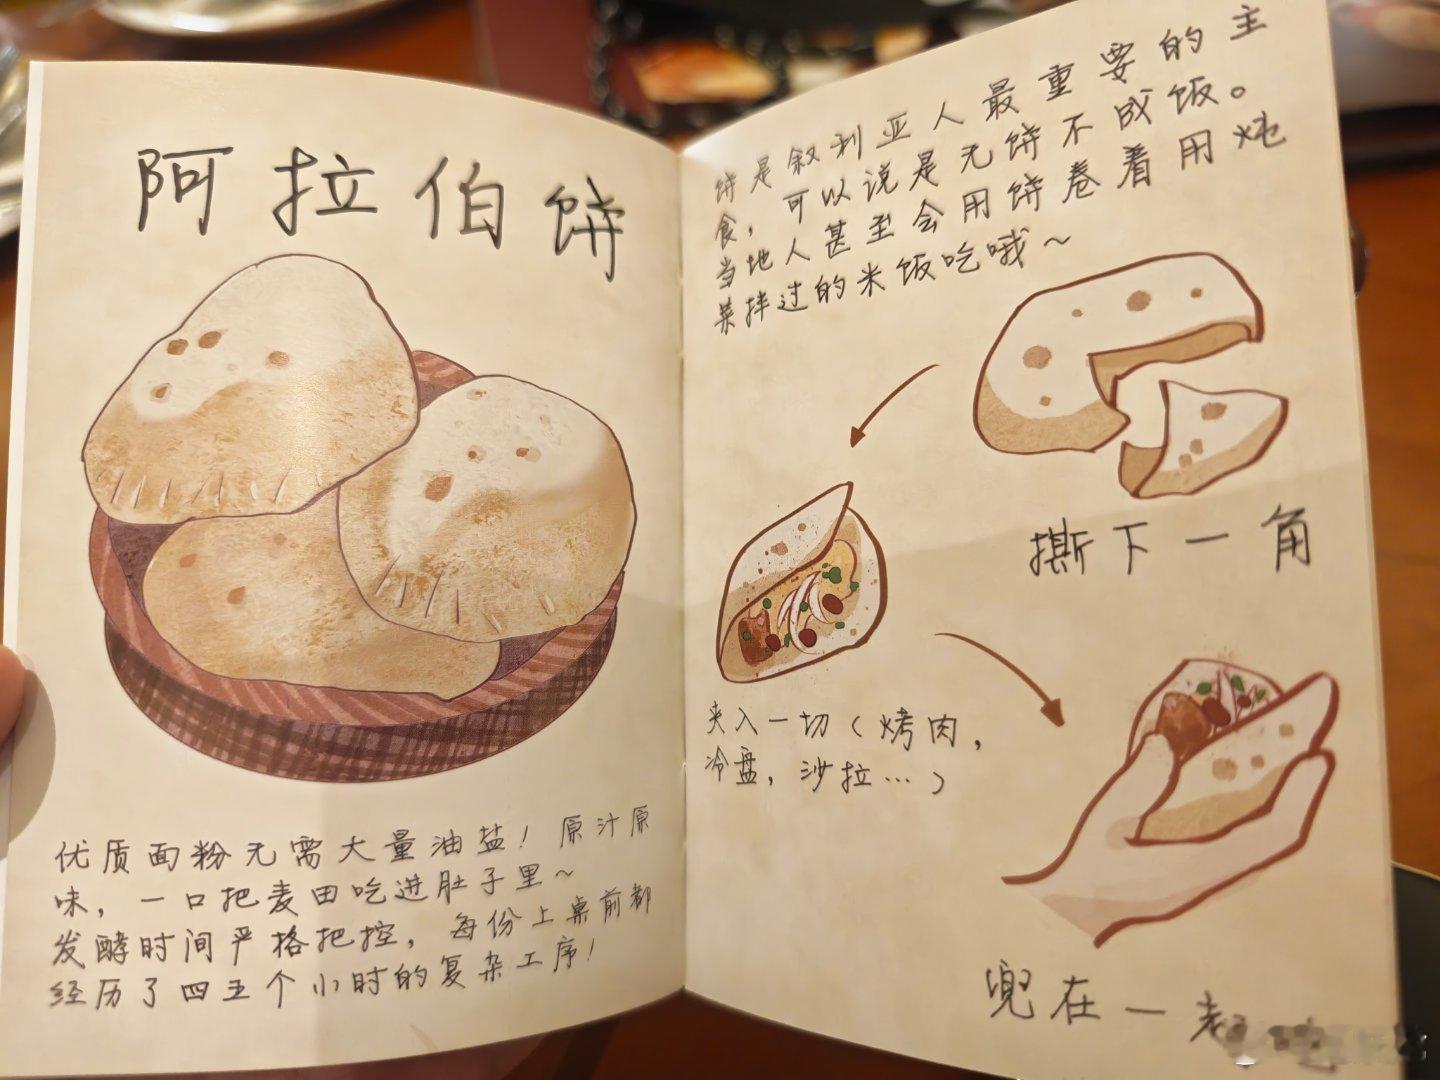 阿拉伯饼
优质面粉无需大量油盐！原汁原
味，一口把麦田吃进肚子里～
发酵时间严格把控，每份上桌前都
经历了四五个小时的复杂工序！
饼是叙利亚人最重要的主
食，可以说是无饼不成饭。
当地人甚至会用饼卷着用炖
菜拌过的米饭吃哦～
撕下一角
夹入一切（烤肉，
冷盘，沙拉…）
兜在一